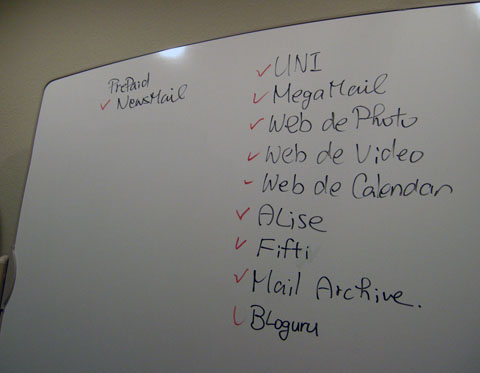 PrePaid
✓ NewsMail
✓ UNI
✓ MegaMail
✓ Web de Photo
✓ Web de Video
✓ Web de Calendar
✓ ALise
✓ Fifti
✓ Mail Archive.
✓ BLoguru